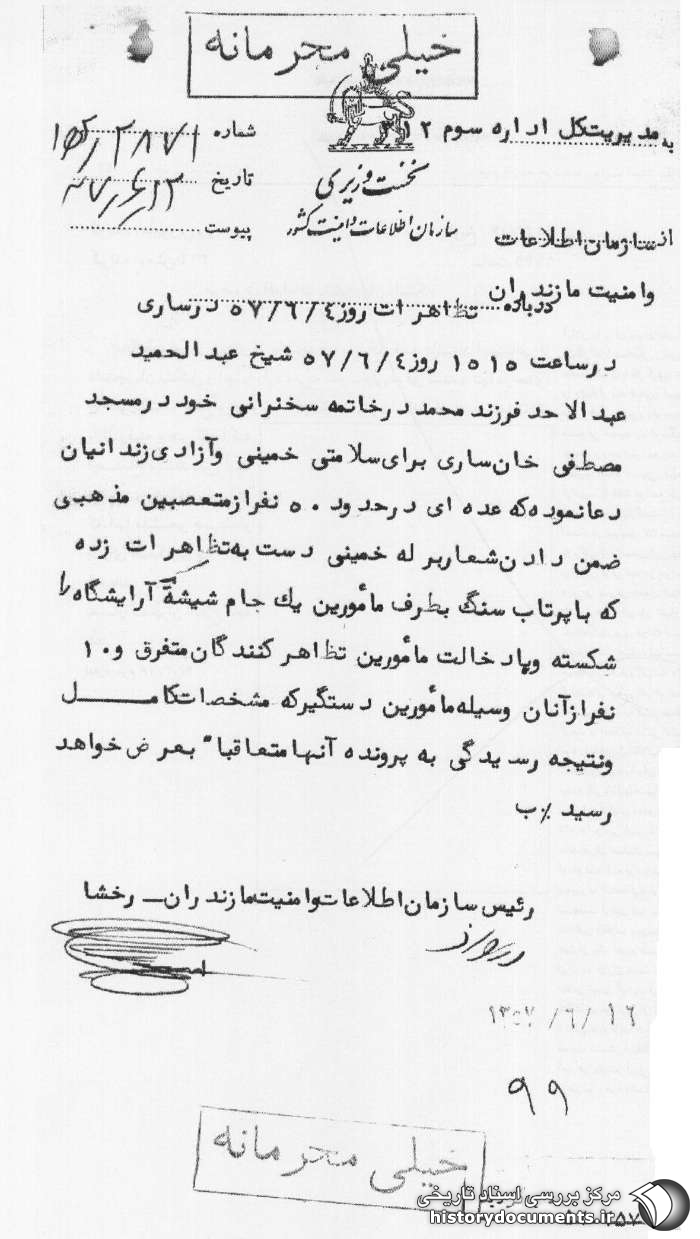 خیلی محرمانه
به مدیریت کل اداره سوم ۳۱۲
شماره ۲۸۷۱
تاریخ
پیوست
نخست وزیری
سازمان اطلاعات و امنیت کشور
از سازمان اطلاعات
وامنیت مازندران
درباره تظاهرات روز ۵۷/۶/۴ درساری
درساعت ۱۵۱۵ روز ۵۷/۶/۴ شیخ عبدالحمید
عبدالاحد فرزند محمد درخاتمه سخنرانی خود درمسجد
مصطفی خان ساری برای سلامتی خمینی وآزادی زندانیان
دعانموده که عده ای درحدود ۵۰ نفرازمتعصبین مذهبی
ضمن دادن شعاربر له خمینی دست به تظاهرات زده
که باپرتاب سنگ بطرف مأمورین یك جام شیشه آرایشگاه را
شکسته وبادخالت مأمورین تظاهرکنندگان متفرق و۱۰
نفرازآنان وسیله مأمورین دستگیرکه مشخصات کامل
ونتیجه رسیدگی به پرونده آنها متعاقبا" بعرض خواهد
رسید ٪ ب
رئیس سازمان اطلاعات وامنیت مازندران_ رخشا
۱۳۵۷/۶/۱۶
۹۹
خیلی محرمانه
مرکز بررسی اسناد تاریخی
historydocuments.ir